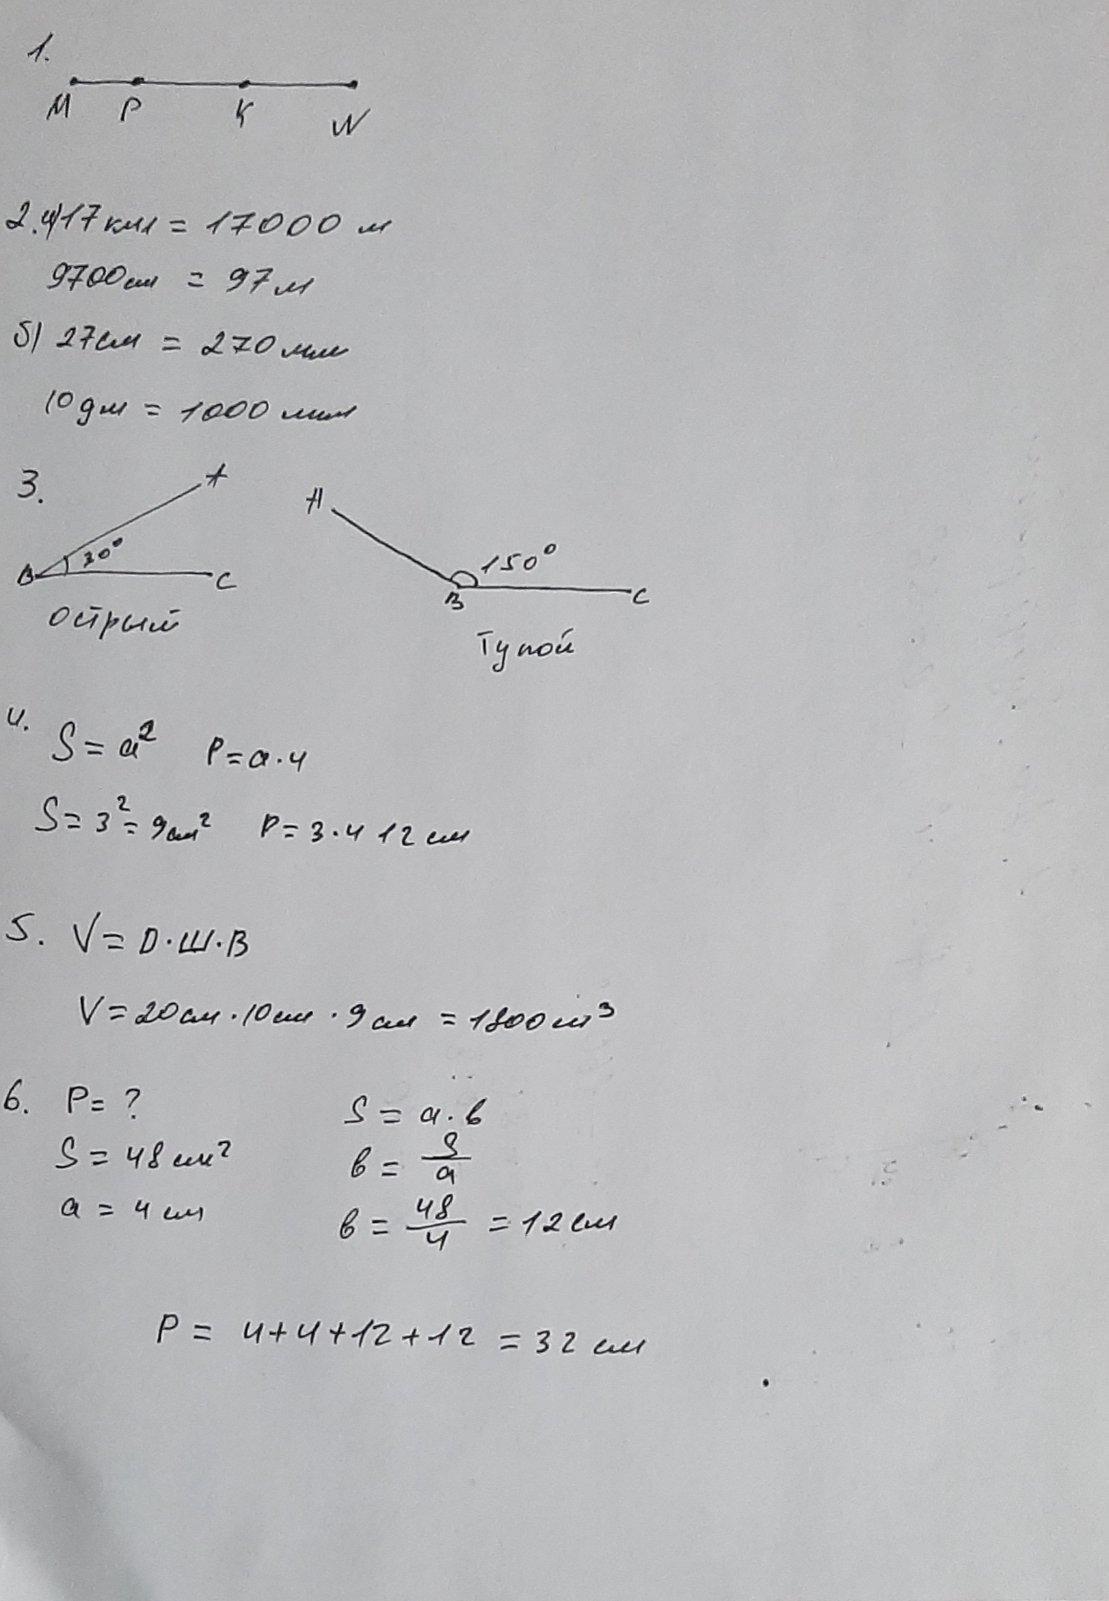 1.
M P K N
2. а) 17 км = 17000 м
9700 см = 97 м
б) 27 см = 270 мм
10 дм = 1000 мм
3.
A
B 30° C
острый
A
B 150° C
Тупой
4.
S = a² P = a · 4
S = 3² = 9 см² P = 3 · 4 12 см
5. V = Д · Ш · В
V = 20 см · 10 см · 9 см = 1800 см³
6. P = ? S = a · b
S = 48 см² b = S/a
a = 4 см b = 48/4 = 12 см
P = 4+4+12+12 = 32 см